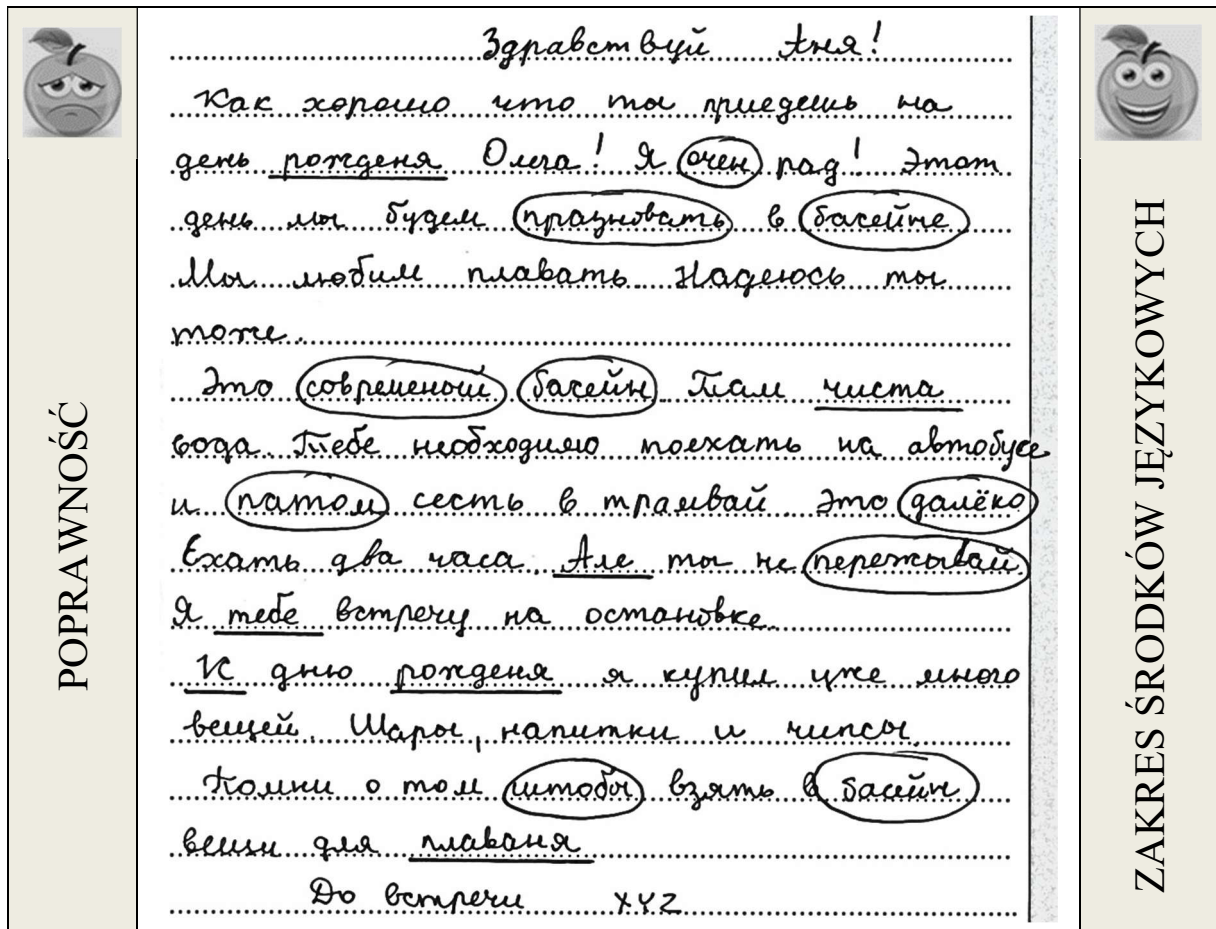 POPRAWNOŚĆ
Здравствуй Аня!
Как хорошо что ты приедешь на
день рожденя Олега! Я очен рад! Этот
день мы будем празновать в басейне
Мы любим плавать Надеюсь ты
тоже.
Это современый басейн Там чиста
вода. Тебе необходимо поехать на автобусе
и патом сесть в трамвай Это далёко
Ехать два часа. Але ты не пережывай
Я тебе встречу на остановке
К дню рожденя я купил уже много
вещей. Шары, напитки и чипсы
Помни о том штобы взять в басейн
вещи для плаваня
До встречи XYZ
ZAKRES ŚRODKÓW JĘZYKOWYCH